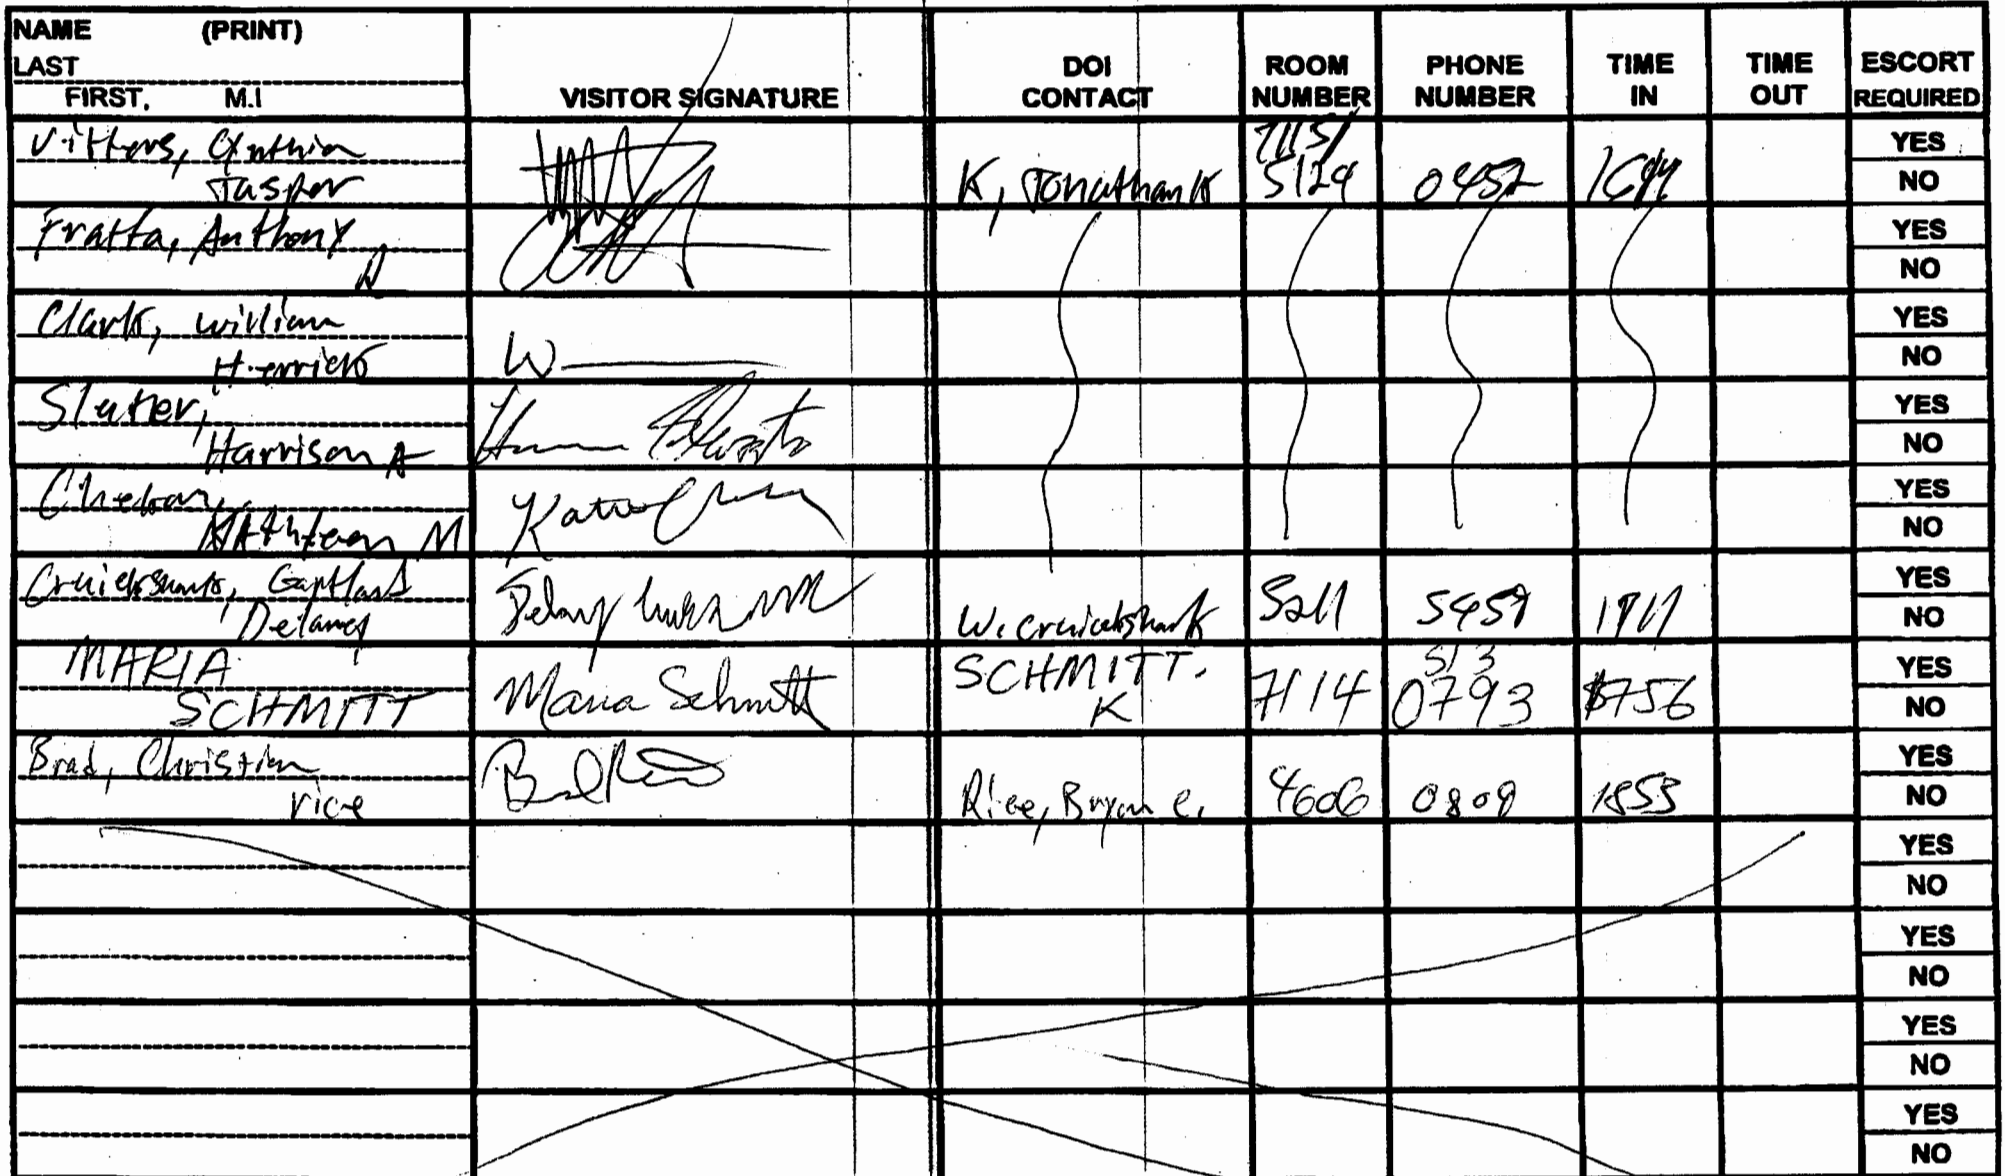 NAME (PRINT)
LAST
FIRST, M.I
VISITOR SIGNATURE
DOI CONTACT
ROOM NUMBER
PHONE NUMBER
TIME IN
TIME OUT
ESCORT REQUIRED
Vitters, Cynthia
Jasper
K, Jonathan K
7115/
5124
0452
YES
NO
Fratta, Anthony
YES
NO
Clark, William
Herrick
W
YES
NO
Slatter,
Harrison A
YES
NO
M
YES
NO
Delaney
W. Cruickshank
5211
5457
1711
YES
NO
MARIA
SCHMITT
Maria Schmitt
SCHMITT.
K
7114
513
0793
1756
YES
NO
Brad, Christian
rice
Rice, Bryan C.
4606
0809
1853
YES
NO
YES
NO
YES
NO
YES
NO
YES
NO